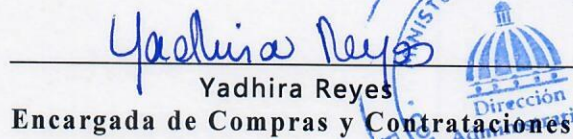 Yadhira Reyes
Yadhira Reyes
Encargada de Compras y Contrataciones
Dirección